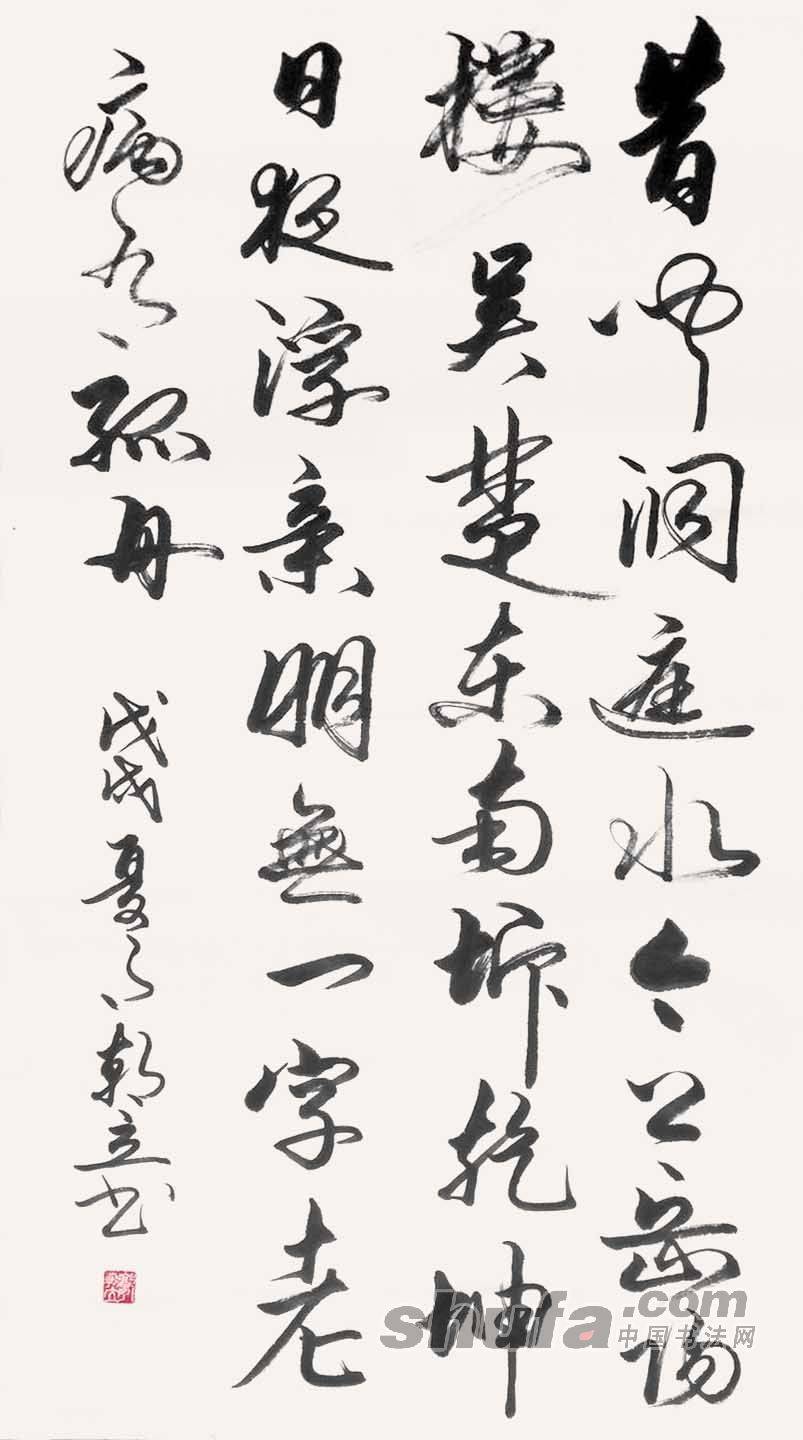 昔闻洞庭水今上岳阳
楼吴楚东南坼乾坤
日夜浮亲朋無一字老
病有孤舟
戊戌夏 立书
shufa.com
中国书法网